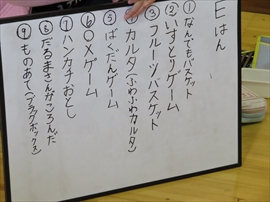 Eはん
①なんでもバスケット
②いすとりゲーム
③フルーツバスケット
④カルタ(ふわふわカルタ)
⑤ばくだんゲーム
⑥〇×ゲーム
⑦ハンカチおとし
⑧だるまさんがころんだ
⑨ものあて(ブラックボックス)